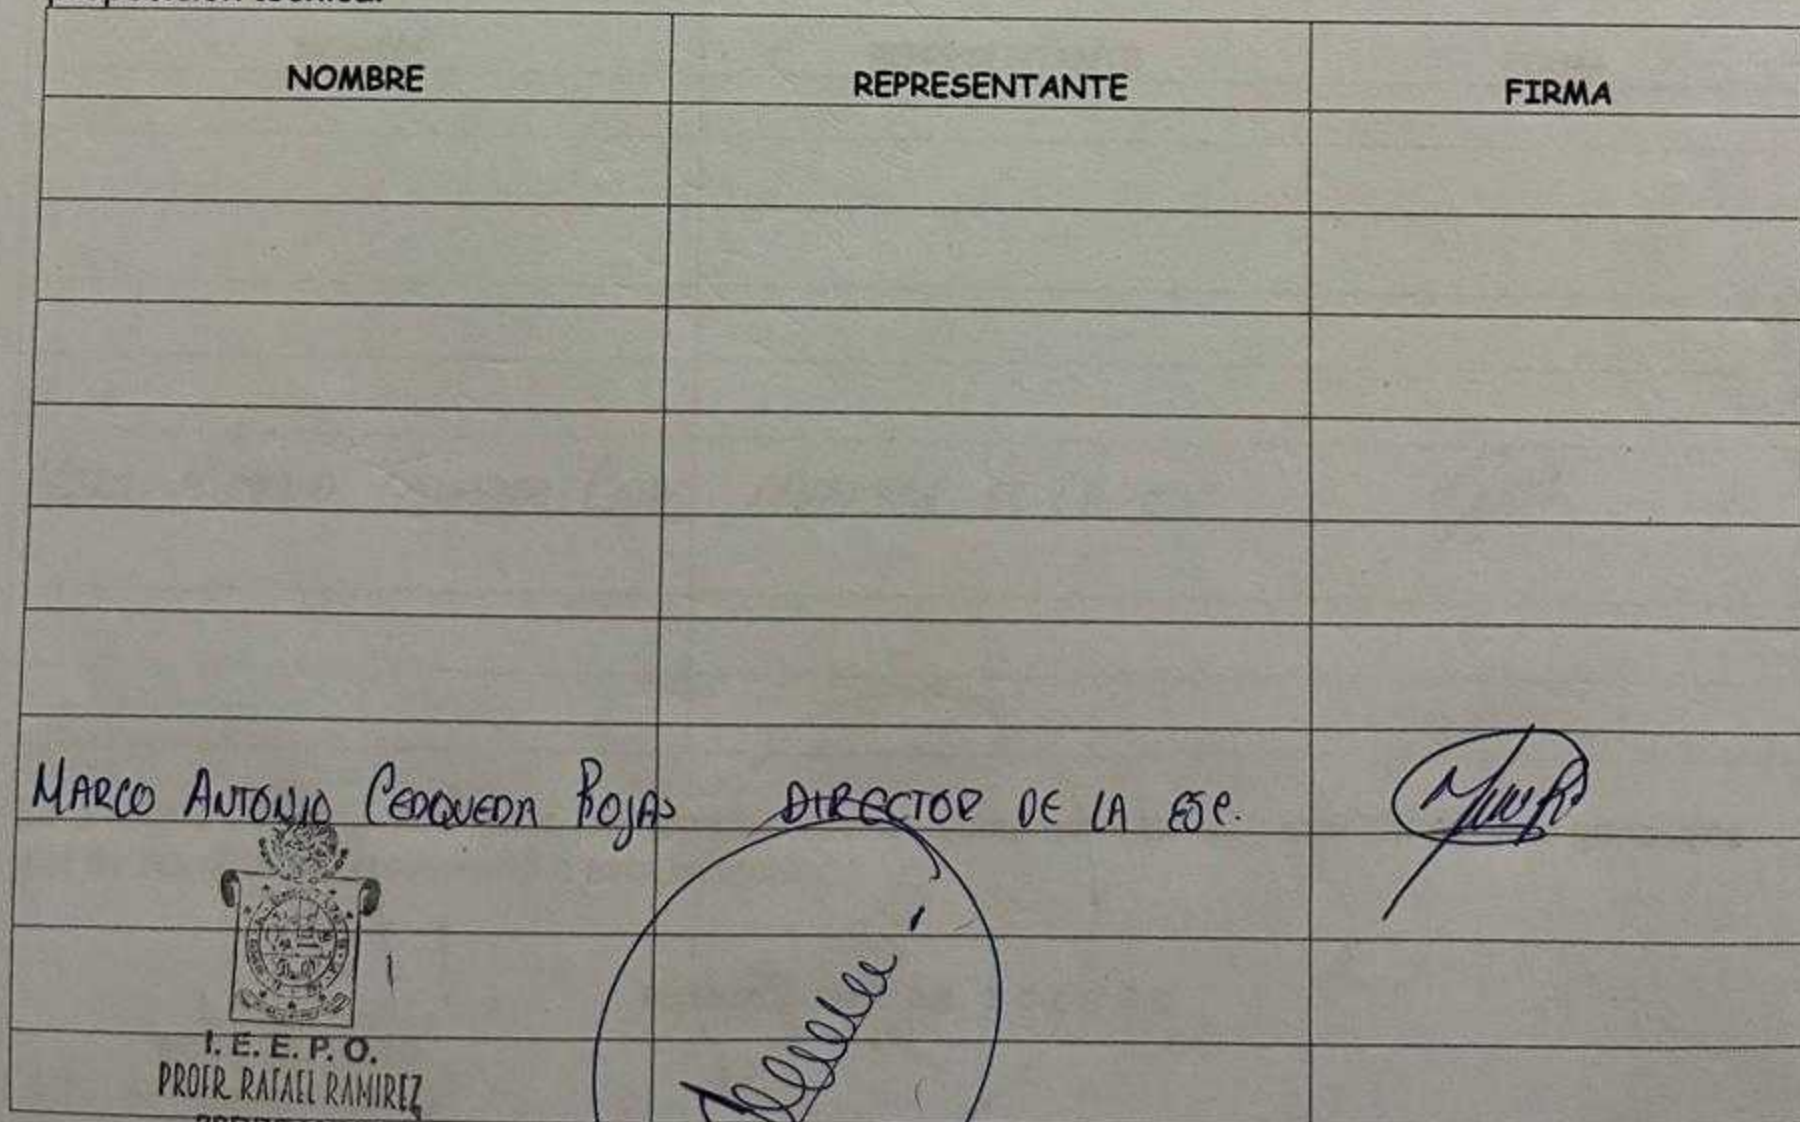 NOMBRE REPRESENTANTE FIRMA
MARCO ANTONIO CERQUEDA ROJAS DIRECTOR DE LA ESC.
I. E. E. P. O.
PROFR. RAFAEL RAMIREZ